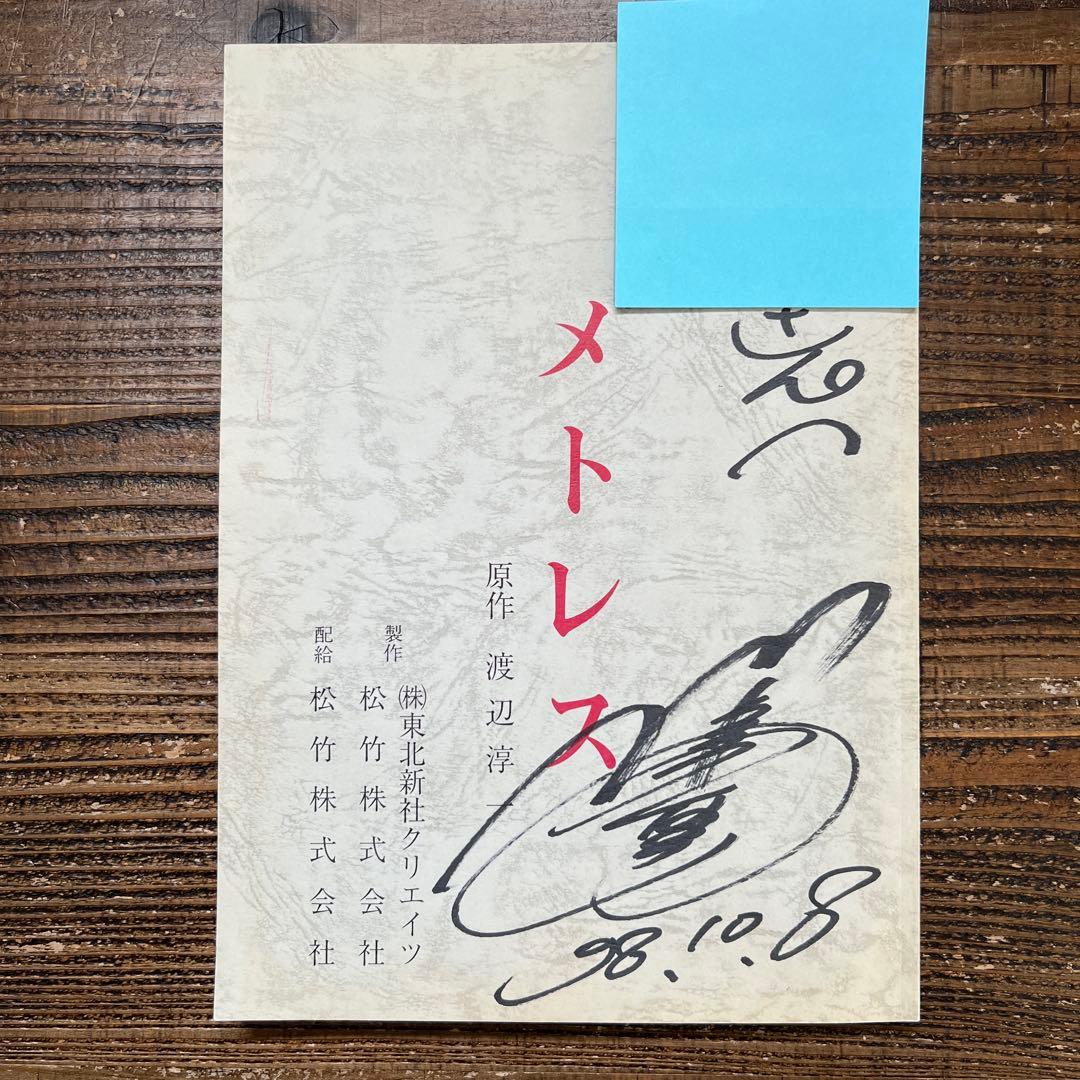 さんへ
メトレス
原作 渡辺淳一
製作 ㈱東北新社クリエイツ
松竹株式会社
配給 松竹株式会社
98.10.8